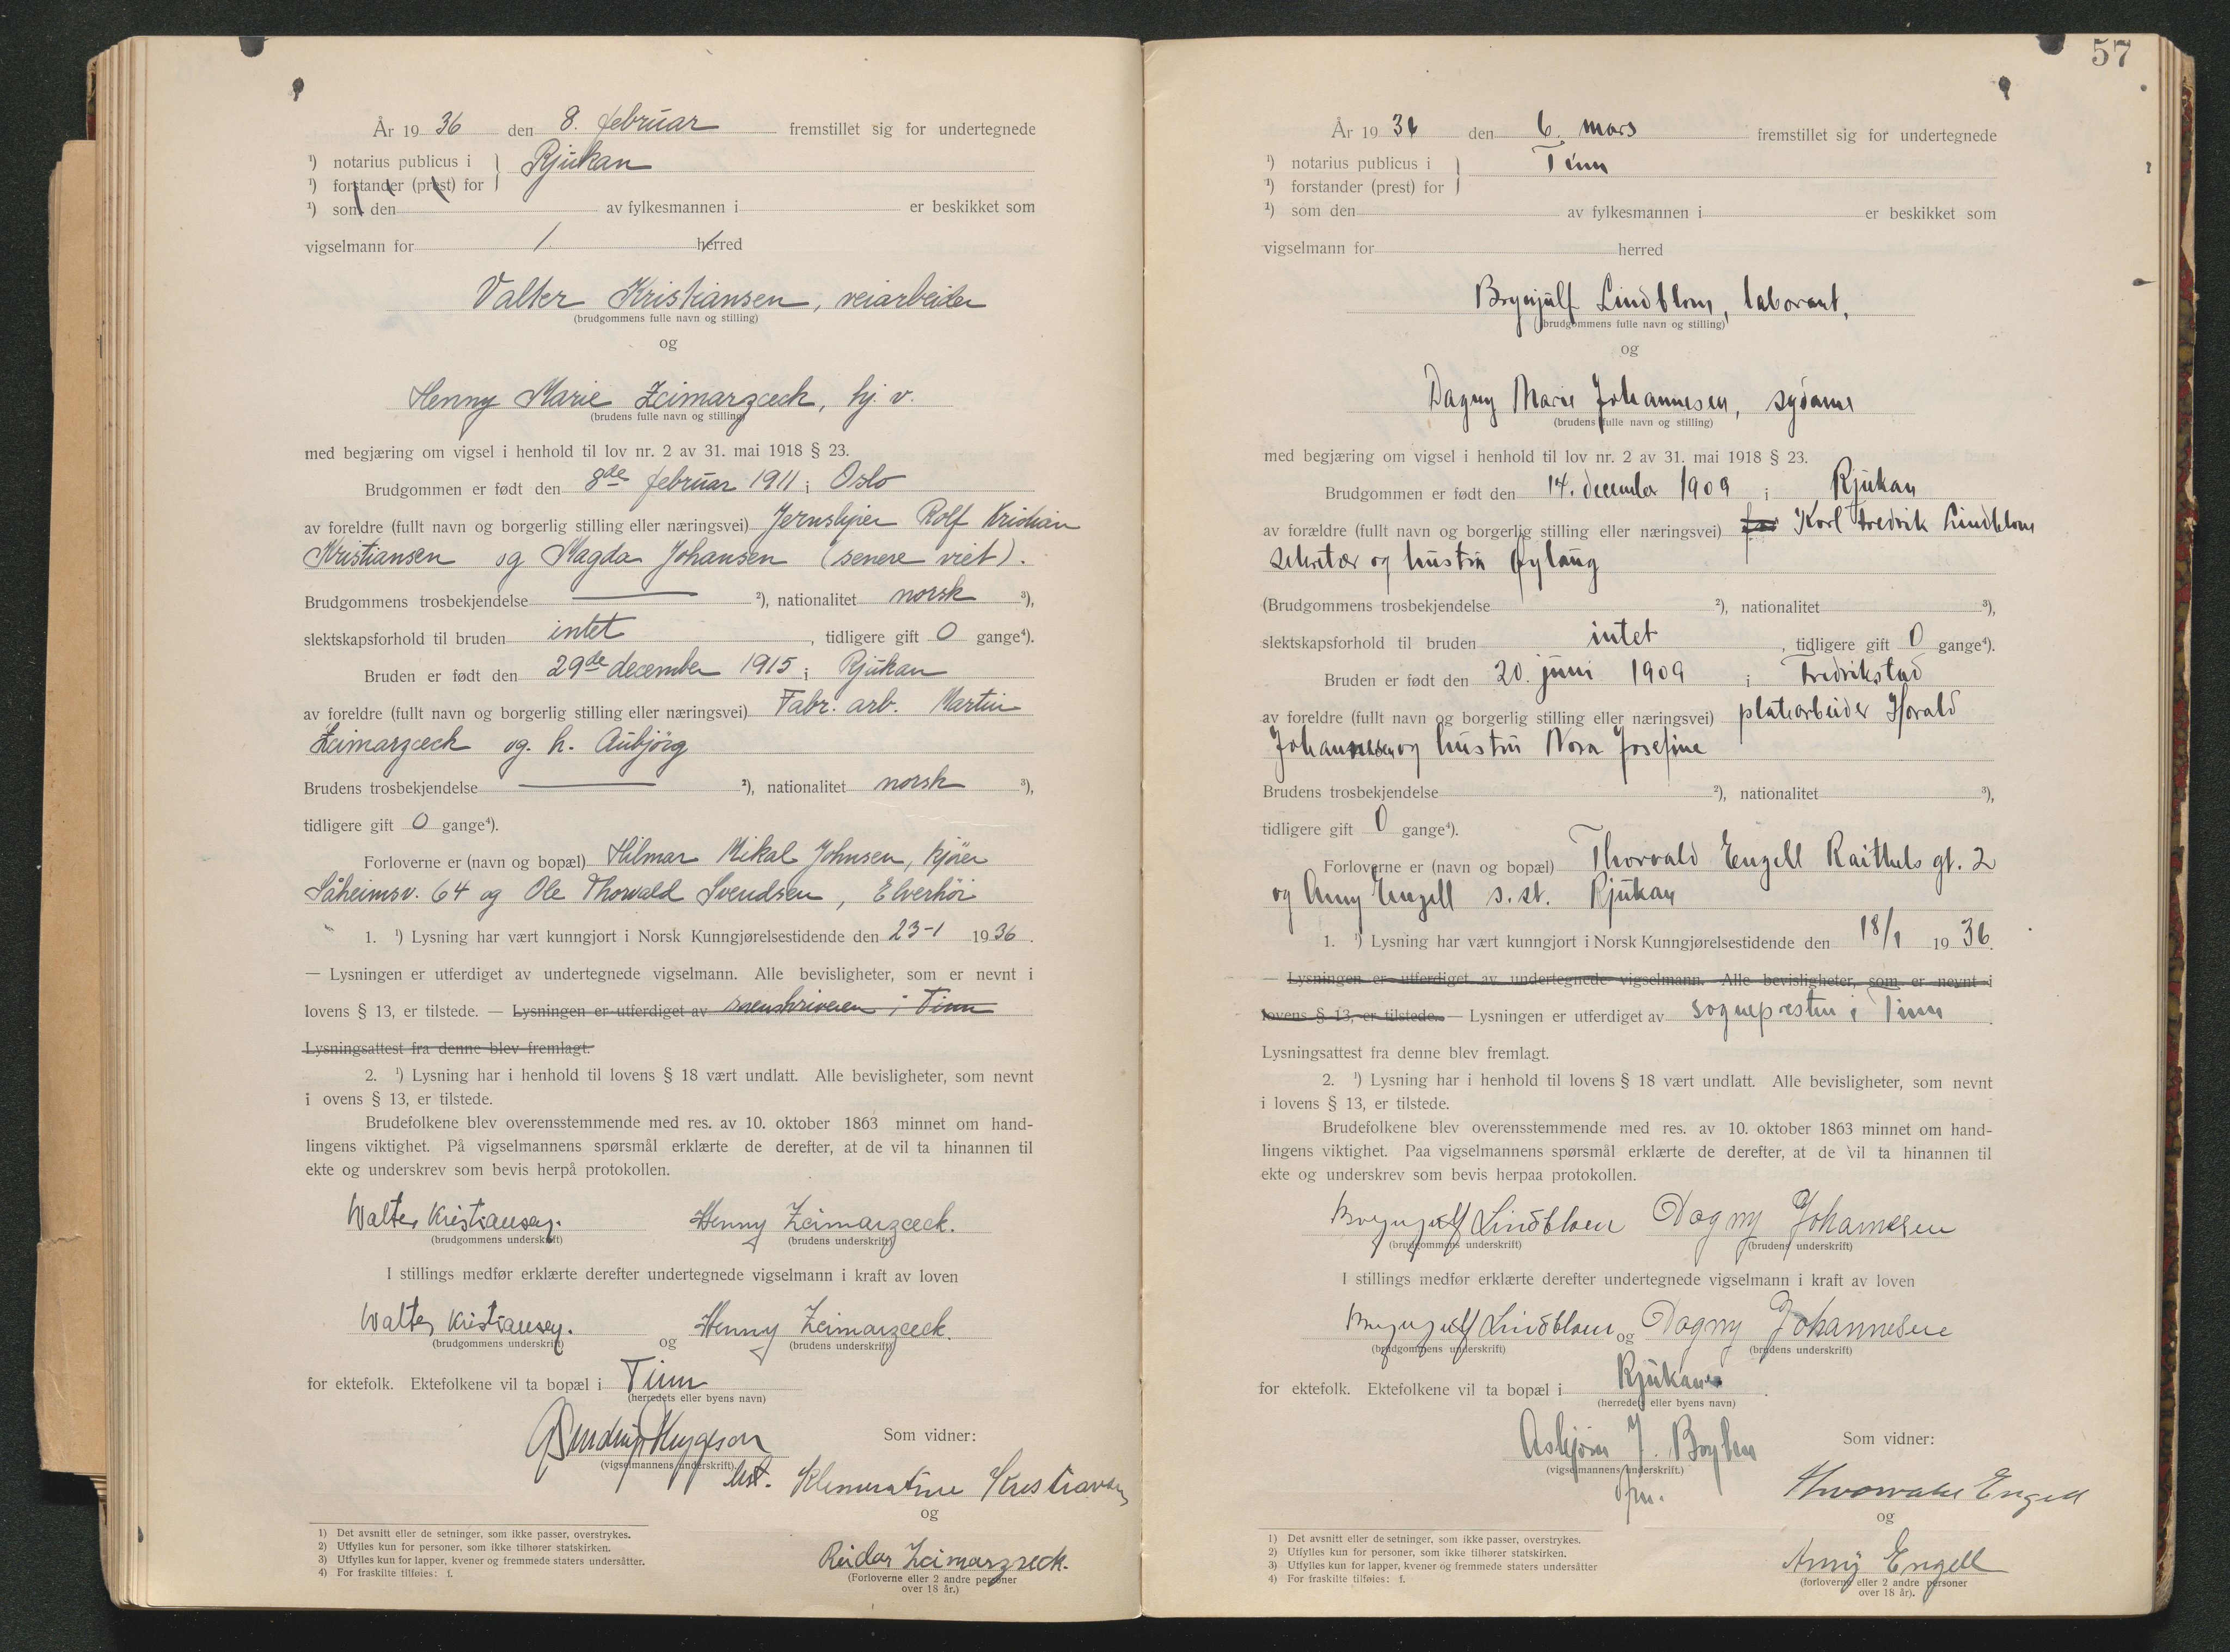 År 1936 den 8. februar fremstillet sig for undertegnede
¹) notarius publicus i } Rjukan
¹) forstander (prest) for
¹) som den av fylkesmannen i er beskikket som
vigselmann for herred
Valter Kristiansen, veiarbeider
(brudgommens fulle navn og stilling)
og
Henny Marie Zeimarzæck, hj. v.
(brudens fulle navn og stilling)
med begjæring om vigsel i henhold til lov nr. 2 av 31. mai 1918 § 23.
Brudgommen er født den 8de februar 1911 i Oslo
av foreldre (fullt navn og borgerlig stilling eller næringsvei) Rolf Kristian
Kristiansen og Magda Johansen (senere viet).
Brudgommens trosbekjendelse ²), nationalitet norsk ³),
slektskapsforhold til bruden intet, tidligere gift 0 gange⁴).
Bruden er født den 29de december 1915 i Rjukan
av foreldre (fullt navn og borgerlig stilling eller næringsvei) Fabr. arb. Martin
Zeimarzæck og h. Aubjörg
Brudens trosbekjendelse ²), nationalitet norsk ³),
tidligere gift 0 gange⁴).
Forloverne er (navn og bopæl) Hilmar Mikal Johnsen, kjörer
Såheimsv. 64 og Ole Thorvald Svendsen, Elverhöi
1. ¹) Lysning har vært kunngjort i Norsk Kunngjørelsestidende den 23-1 1936.
— Lysningen er utferdiget av undertegnede vigselmann. Alle bevisligheter, som er nevnt i
lovens § 13, er tilstede. — Lysningen er utferdiget av sorenskriveren i Tinn
Lysningsattest fra denne blev fremlagt.
2. ¹) Lysning har i henhold til lovens § 18 vært undlatt. Alle bevisligheter, som nevnt
i ovens § 13, er tilstede.
Brudefolkene blev overensstemmende med res. av 10. oktober 1863 minnet om hand-
lingens viktighet. På vigselmannens spørsmål erklærte de derefter, at de vil ta hinannen til
ekte og underskrev som bevis herpå protokollen.
Walter Kristiansen. Henny Zeimarzæck.
(brudgommens underskrift) (brudens underskrift)
I stillings medfør erklærte derefter undertegnede vigselmann i kraft av loven
Walter Kristiansen. og Henny Zeimarzæck.
(brudgommens underskrift) (brudens underskrift)
for ektefolk. Ektefolkene vil ta bopæl i Tinn
(herredets eller byens navn)
Som vidner:
(vigselmannens underskrift).
Klementine Kristiansen
og
Reidar Zeimarzæck.
(Forloverne eller 2 andre personer
over 18 år.)
1) Det avsnitt eller de setninger, som ikke passer, overstrykes.
2) Utfylles kun for personer, som ikke tilhører statskirken.
3) Utfylles kun for lapper, kvener og fremmede staters undersåtter.
4) For fraskilte tilføies: f.
57
År 1936 den 6. mars fremstillet sig for undertegnede
¹) notarius publicus i } Tinn
¹) forstander (prest) for
¹) som den av fylkesmannen i er beskikket som
vigselmann for herred
Brynjulf Lindblom, laborant,
(brudgommens fulle navn og stilling)
og
Dagny Marie Johannesen, sydame
(brudens fulle navn og stilling)
med begjæring om vigsel i henhold til lov nr. 2 av 31. mai 1918 § 23.
Brudgommen er født den 14. december 1909 i Rjukan
av forældre (fullt navn og borgerlig stilling eller næringsvei) Karl Fredrik Lindblom
sekretær og hustru Øylaug
(Brudgommens trosbekjendelse ²), nationalitet ³),
slektskapsforhold til bruden intet, tidligere gift 0 gange⁴).
Bruden er født den 20. juni 1909 i Fredrikstad
av foreldre (fullt navn og borgerlig stilling eller næringsvei) platearbeider Harald
Johannesen og hustru Nora Josefine
Brudens trosbekjendelse ²), nationalitet ³),
tidligere gift 0 gange⁴).
Forloverne er (navn og bopæl) Thorvald Engell Raithels gt. 2
og Anny Engell s. st. Rjukan
1. ¹) Lysning har vært kunngjort i Norsk Kunngjørelsestidende den 18/1 1936.
— Lysningen er utferdiget av undertegnede vigselmann. Alle bevisligheter, som er nevnt i
lovens § 13, er tilstede. — Lysningen er utferdiget av sognepresten i Tinn
Lysningsattest fra denne blev fremlagt.
2. ¹) Lysning har i henhold til lovens § 18 vært undlatt. Alle bevisligheter, som nevnt
i lovens § 13, er tilstede.
Brudefolkene blev overensstemmende med res. av 10. oktober 1863 minnet om hand-
lingens viktighet. Paa vigselmannens spørsmål erklærte de derefter, at de vil ta hinannen til
ekte og underskrev som bevis herpaa protokollen.
Brynjulf Lindblom Dagny Johannesen
(brudgommens underskrift) (brudens underskrift)
I stillings medfør erklærte derefter undertegnede vigselmann i kraft av loven
Brynjulf Lindblom og Dagny Johannesen
(brudgommens underskrift) (brudens underskrift)
for ektefolk. Ektefolkene vil ta bopæl i Rjukan.
(herredets eller byens navn)
Asbjörn J. Som vidner:
(vigselmannens underskrift.)
Thorvald Engell
og
Anny Engell
(forloverne eller 2 andre personer
over 18 år).
1) Det avsnitt eller de setninger, som ikke passer, overstrykes.
2) Utfylles kun for personer, som ikke tilhører statskirken.
3) Utfylles kun for lapper, kvener og fremmede staters undersåtter
4) For fraskilte tilføies: f.